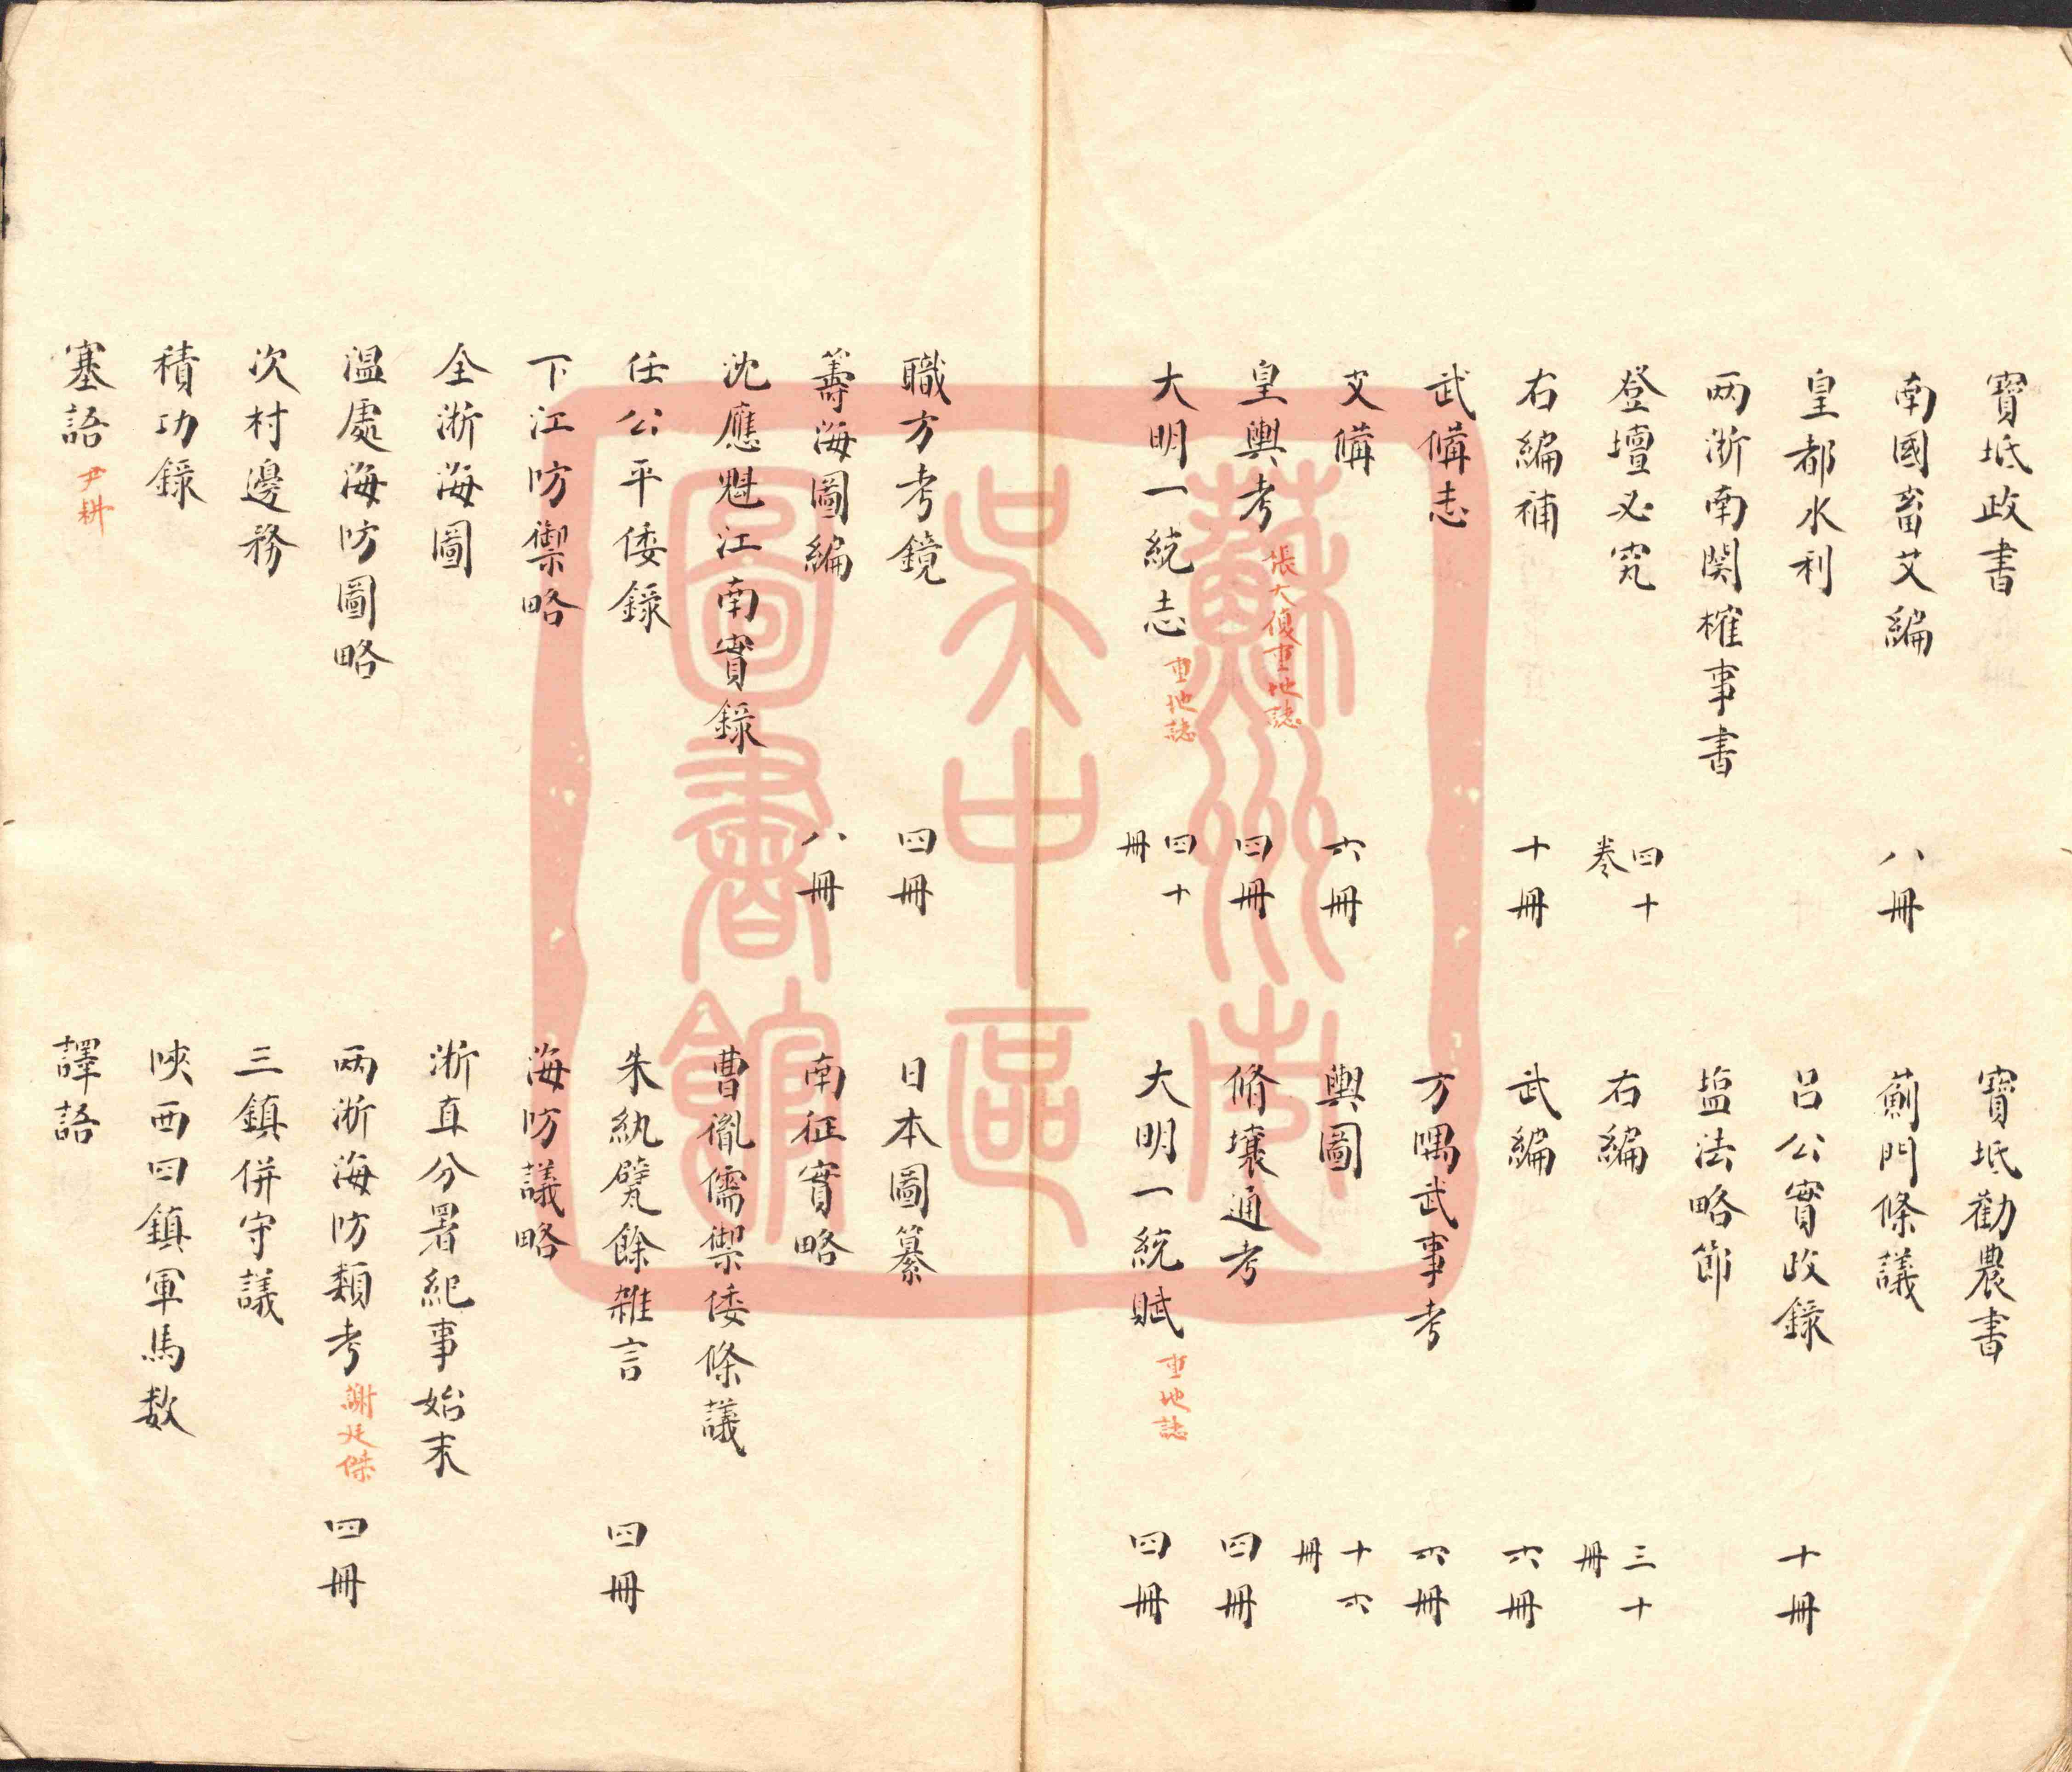 寶坻政書 寶坻勸農書
南國畜艾編 八冊 薊門條議
皇都水利 呂公實政錄 十冊
两浙南関榷事書 盐法略節
登壇必究 四十卷 右編 三十冊
右編補 十冊 武編 六冊
武備志 方隅武事考 六冊
艾備 六冊 輿圖 十六冊
皇輿考 張大復重地誌 四冊 脩壤通考 四冊
大明一統志 重地誌 四十冊 大明一統賦 重地誌 四冊
職方考鏡 四冊 日本圖纂
籌海圖編 八冊 南征實略
沈應魁江南實錄 曹胤儒禦倭條議
任公平倭錄 朱紈甓餘雜言 四冊
下江防禦略 海防議略
全浙海圖 浙直分署紀事始末
温處海防圖略 两浙海防類考 謝廷傑 四冊
次村邊務 三鎮併守議
積功錄 陝西四鎮軍馬数
塞語 尹耕 譯語
蘇州市
吳中區
圖書館